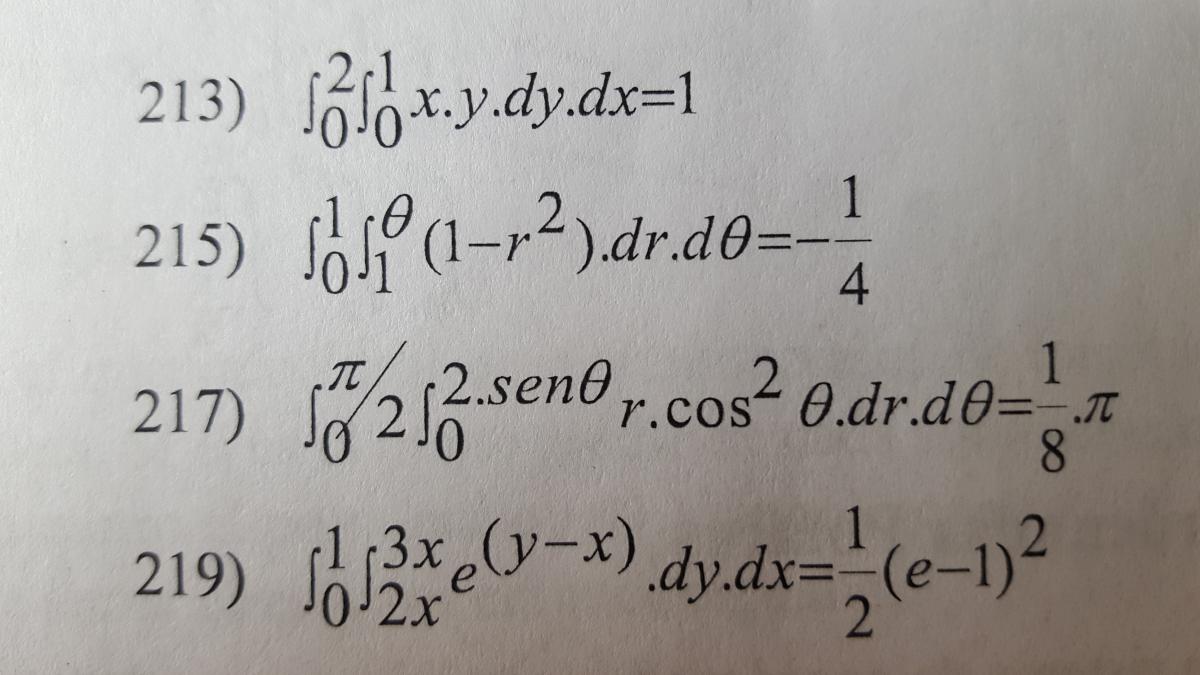 213) ∫₀²∫₀¹ x.y.dy.dx=1
215) ∫₀¹∫₁^θ (1−r²).dr.dθ=−1/4
217) ∫₀^(π/2)∫₀^(2.senθ) r.cos² θ.dr.dθ=1/8.π
219) ∫₀¹∫₂ₓ^(3x) e^(y−x).dy.dx=1/2(e−1)²